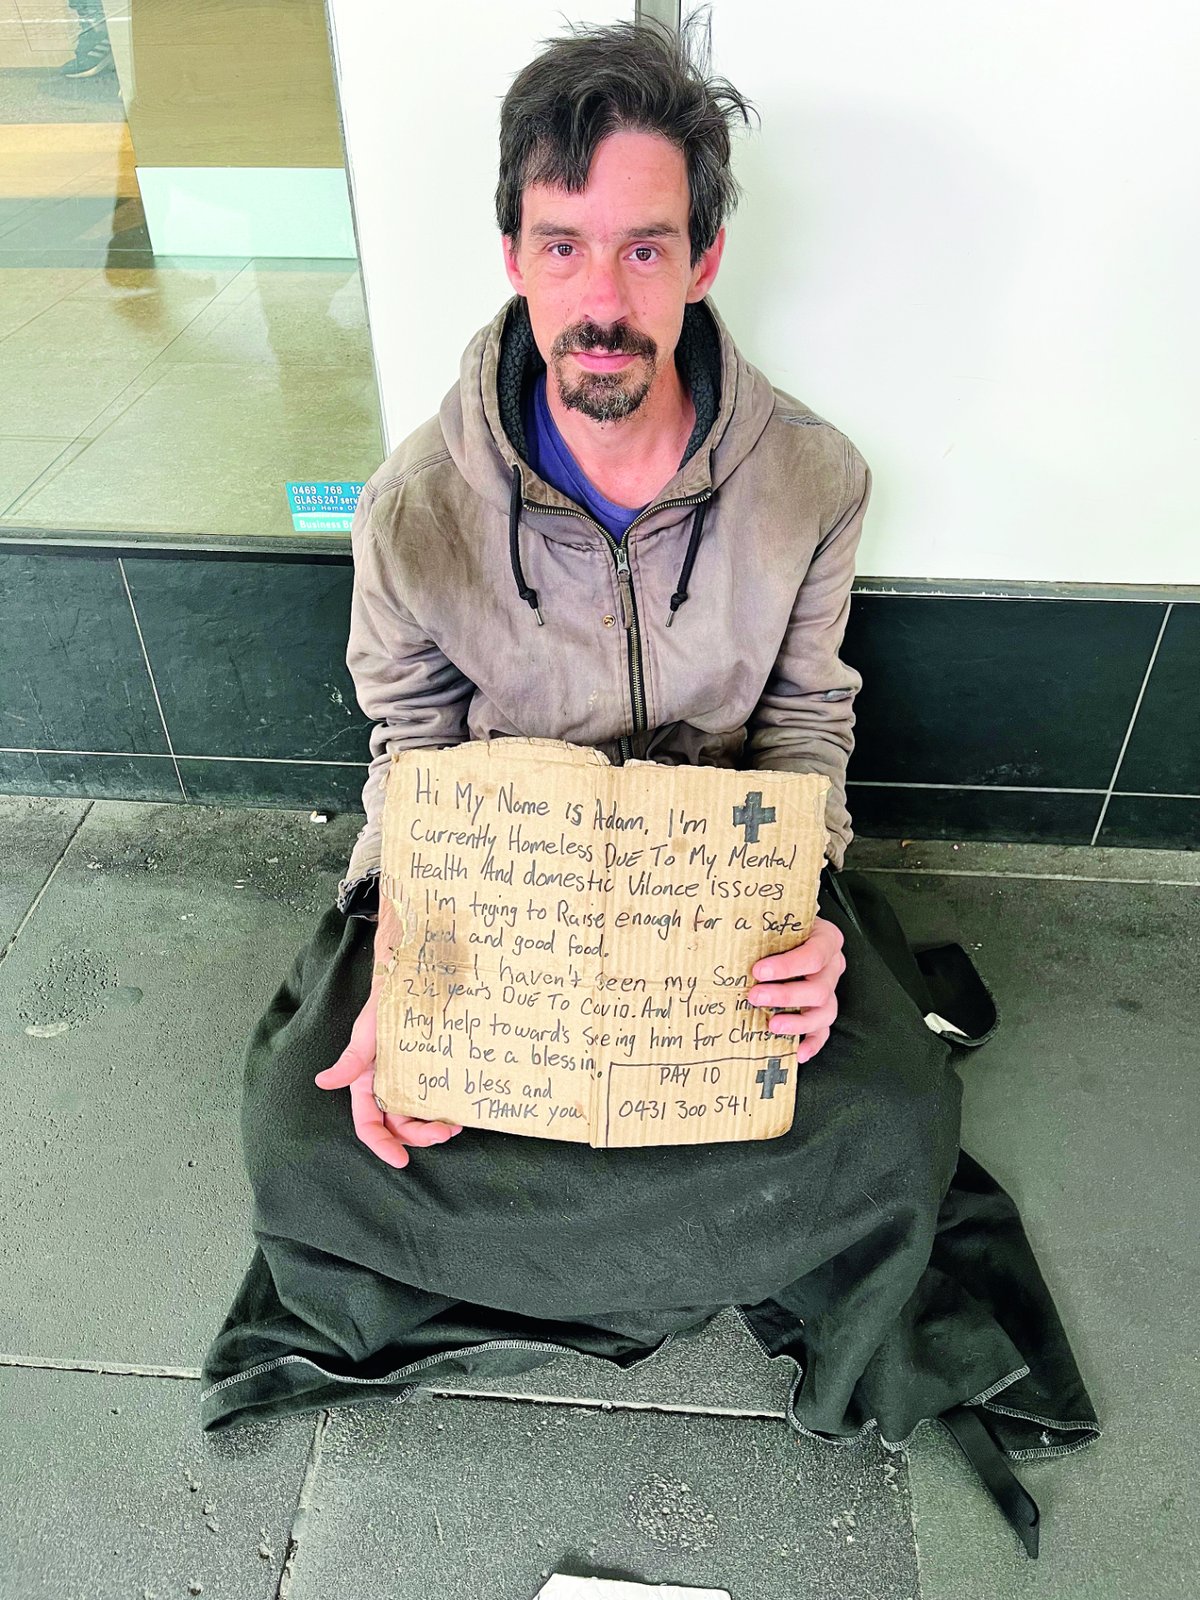 0469 768 12
GLASS 247 serv
Shop Home Of
Business
Hi My Name is Adam. I'm
Currently Homeless DUE To My Mental
Health And domestic Vilonce issues
I'm trying to Raise enough for a Safe
bed and good food.
Also I haven't seen my Son
2½ year's DUE TO COVID. And lives in
Any help toward's Seeing him for Christmas
would be a blessin.
god bless and
THANK you
PAY ID
0431 300 541.